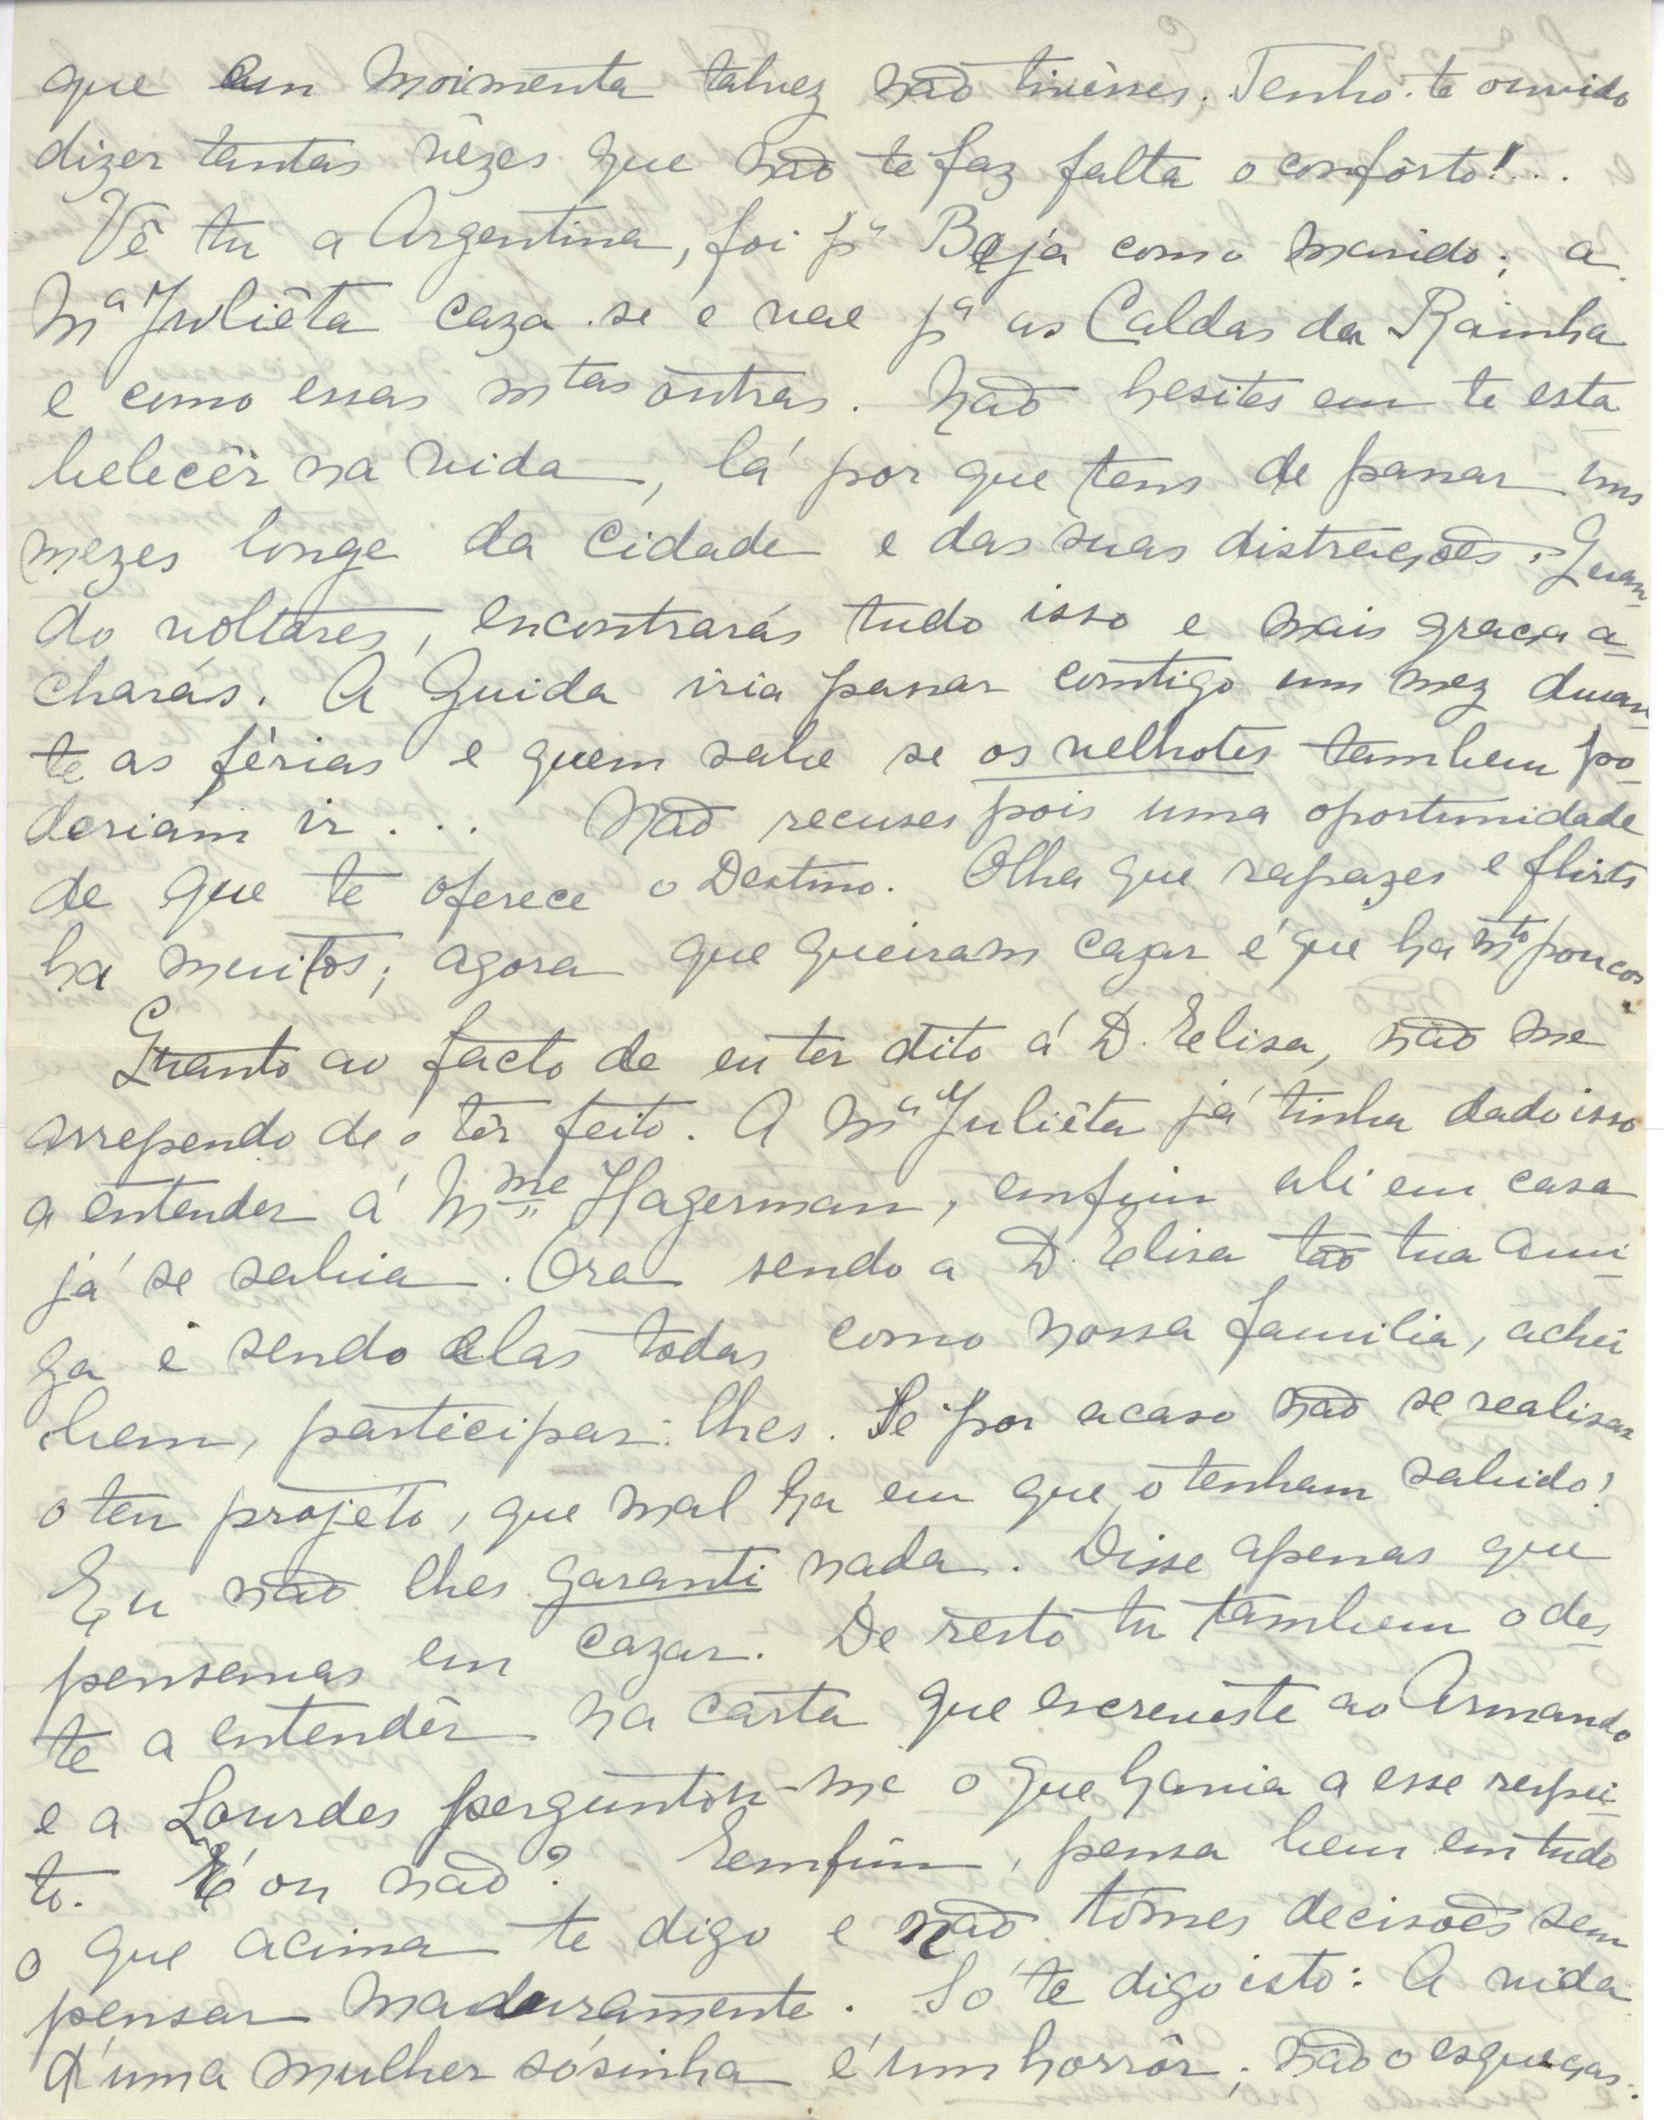 que em Moimenta talvez não tivésses. Tenho-te ouvido
dizer tantas vêzes que não te faz falta o confôrto!...
Vê tu a Argentina, foi pª Beja com o marido; a
Mª Juliêta caza-se e vae pª as Caldas da Rainha
e como essas mtas outras. Não hesites em te esta
belecêr na vida, lá por que tens de passar uns
mezes longe da cidade e das suas distrações. Quan-
do voltares, encontrarás tudo isso e mais graça a-
charás. A Guida iria passar comtigo um mez duran-
te as férias e quem sabe se os velhotes tambem po-
deriam ir... Não recuses pois uma oportunidade
de que te oferece o Destino. Olha que rapazes e flirts
ha muitos; agora que queiram cazar é que ha mto poucos.
Quanto ao facto de eu ter dito á D. Elisa, não me
arrependo de o têr feito. A Mª Juliêta já tinha dado isso
a entender á Mme Hagerman, emfim ali em casa
já se sabia. Ora sendo a D. Elisa tão tua ami-
ga e sendo elas todas como nossa familia, achei
bem, participar-lhes. Se por acaso não se realisar
o teu projéto, que mal ha em que o tenham sabido?
Eu não lhes garanti nada. Disse apenas que
pensamas em cazar. De resto tu tambem o dés-
te a entendêr na carta que escreveste ao Armando
e a Lourdes perguntou-me o que havia a esse respei-
to. É ou não? Emfim, pensa bem em tudo
o que acima te digo e não tômes decisões sem
pensar maduramente. Só te digo isto: A vida
d'uma mulher sósinha é um horrôr; não o esqueças.